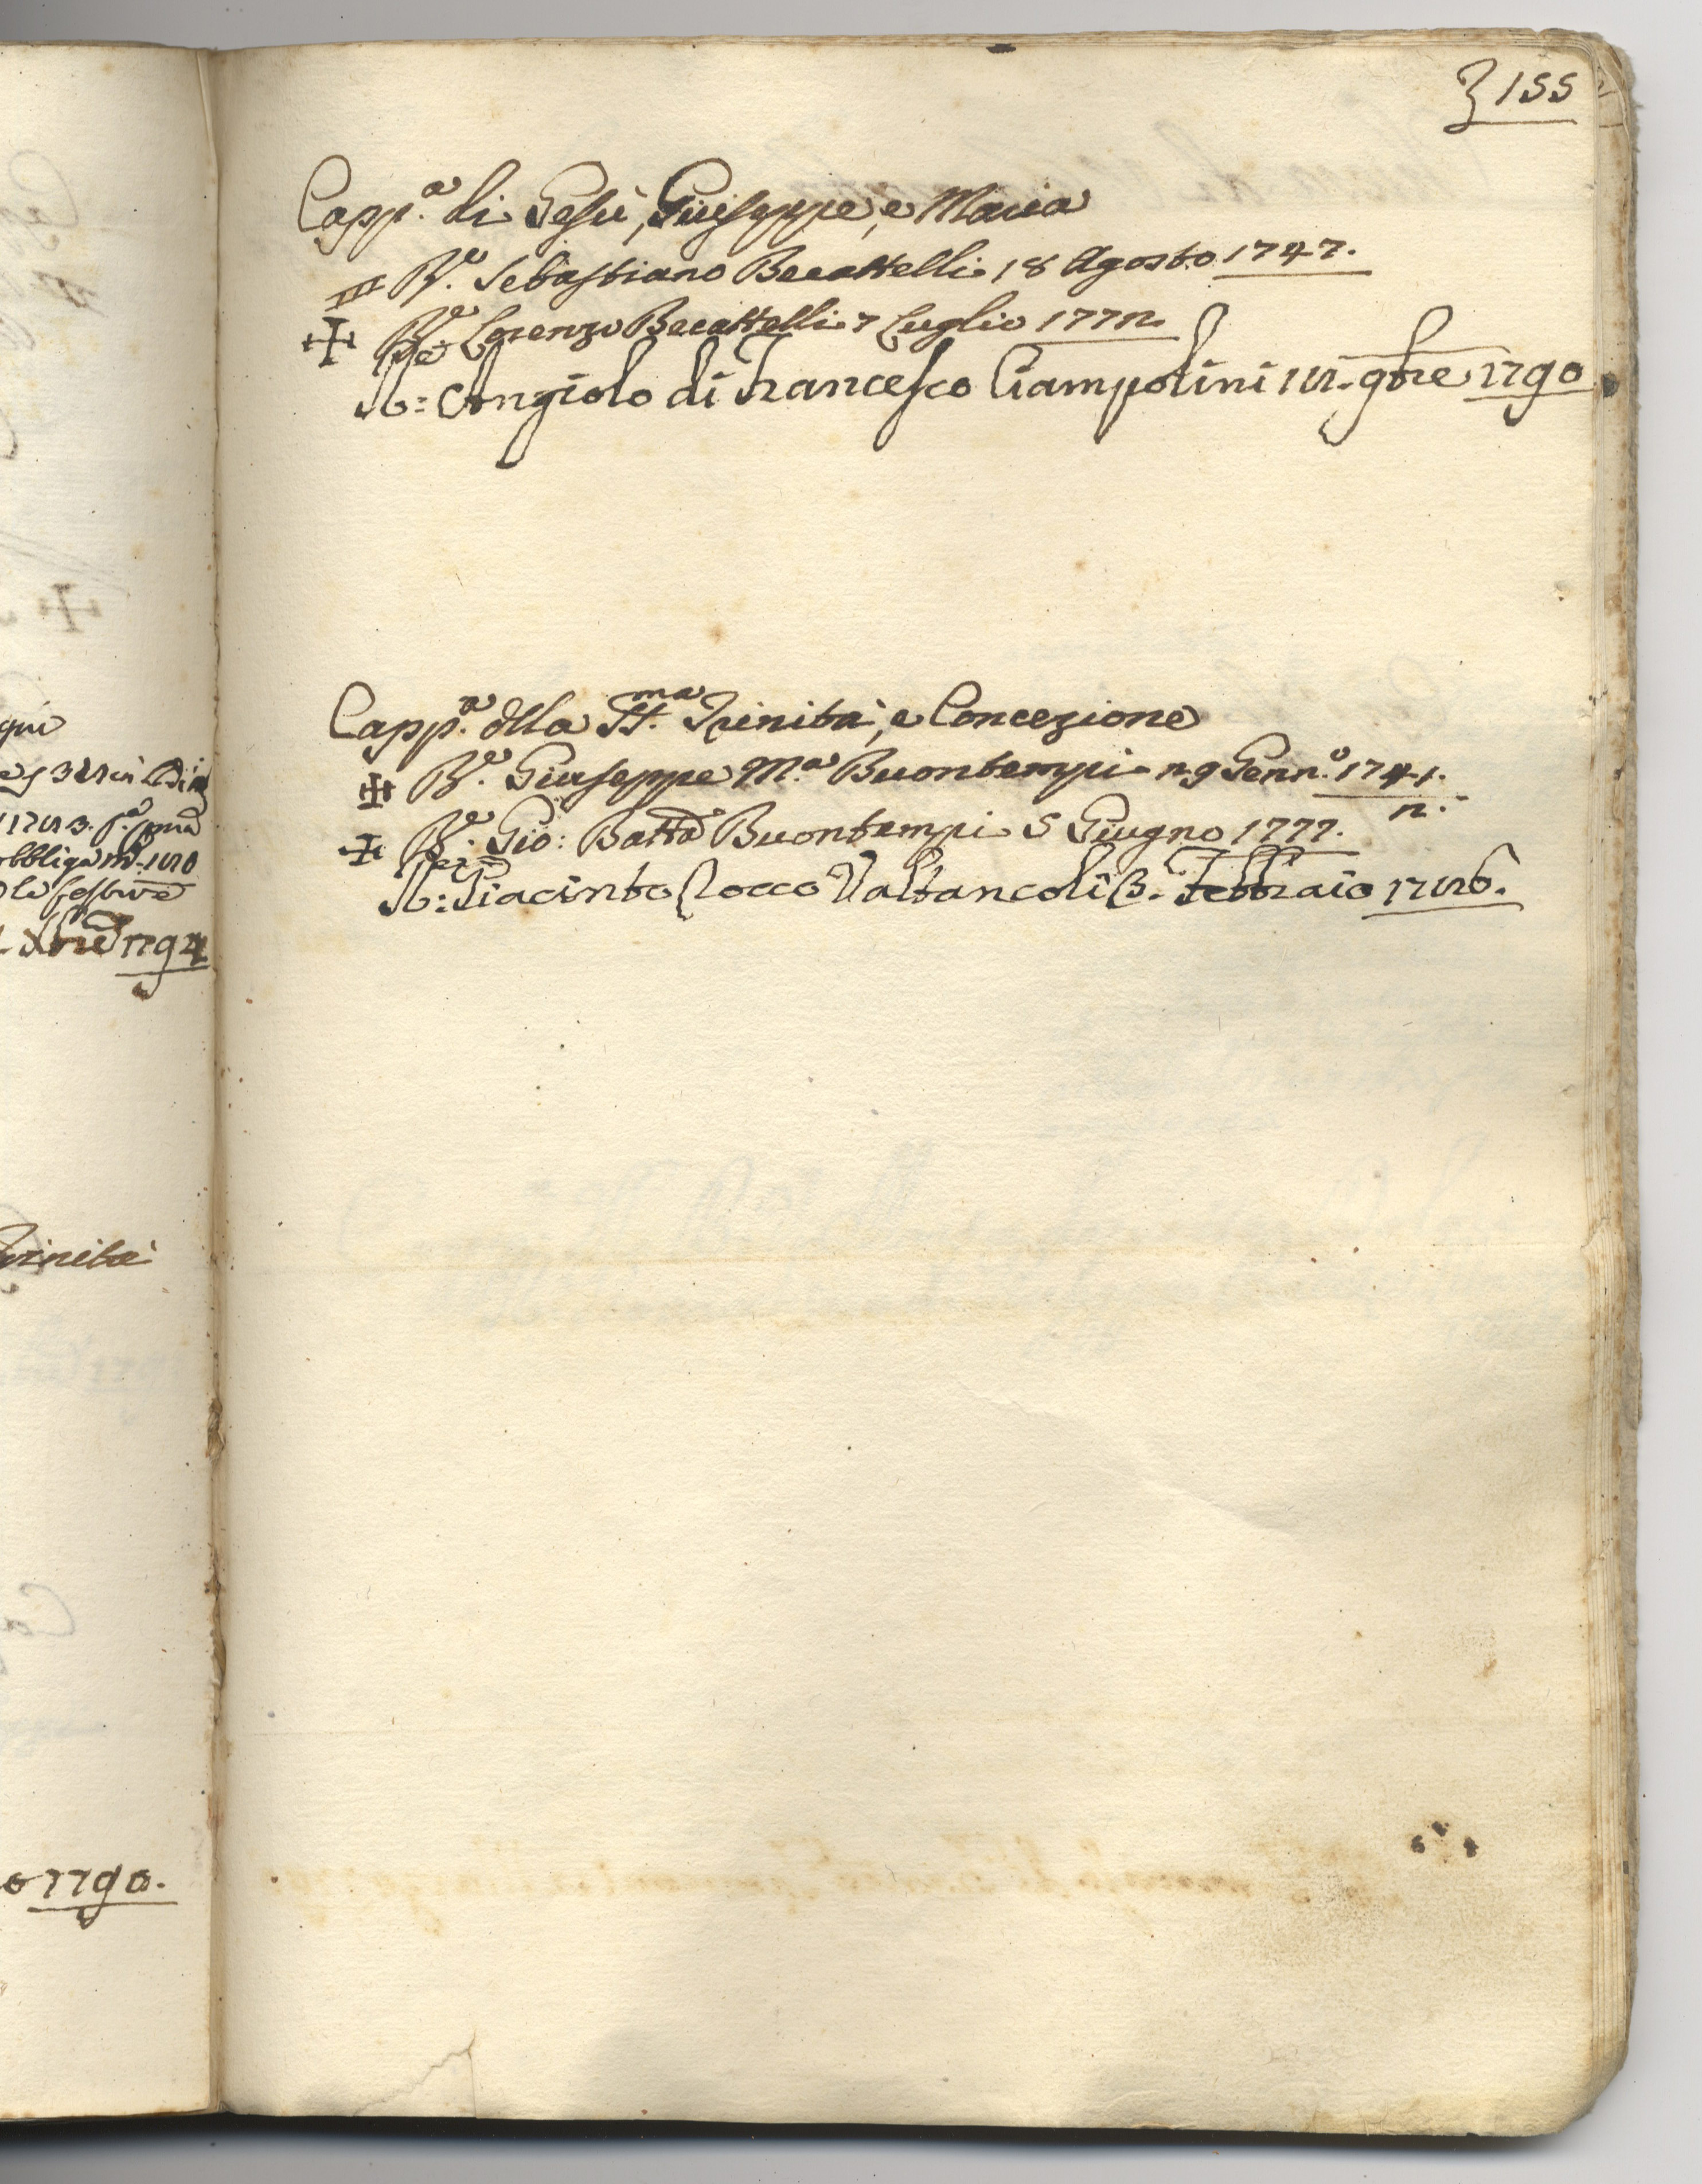 155
Capp.a di Gesù, Giuseppe, e Maria
R.e Sebastiano Becattelli 18 Agosto 1747.
R.e Lorenzo Becattelli 7 Luglio 1772.
Angiolo di Francesco Ciampolini 9bre 1790
Capp.a della SS.ma Trinità, e Concezione
R.e Giuseppe M.a Buontempi 29 Genn.o 1741.
2.
R.e Gio: Batta Buontempi 5 Giugno 1777.
Giacinto Rocco Valtancoli 3. Febbraio 1786.
qui
obbligam
festive
bre 1794
Trinità
o 1790.